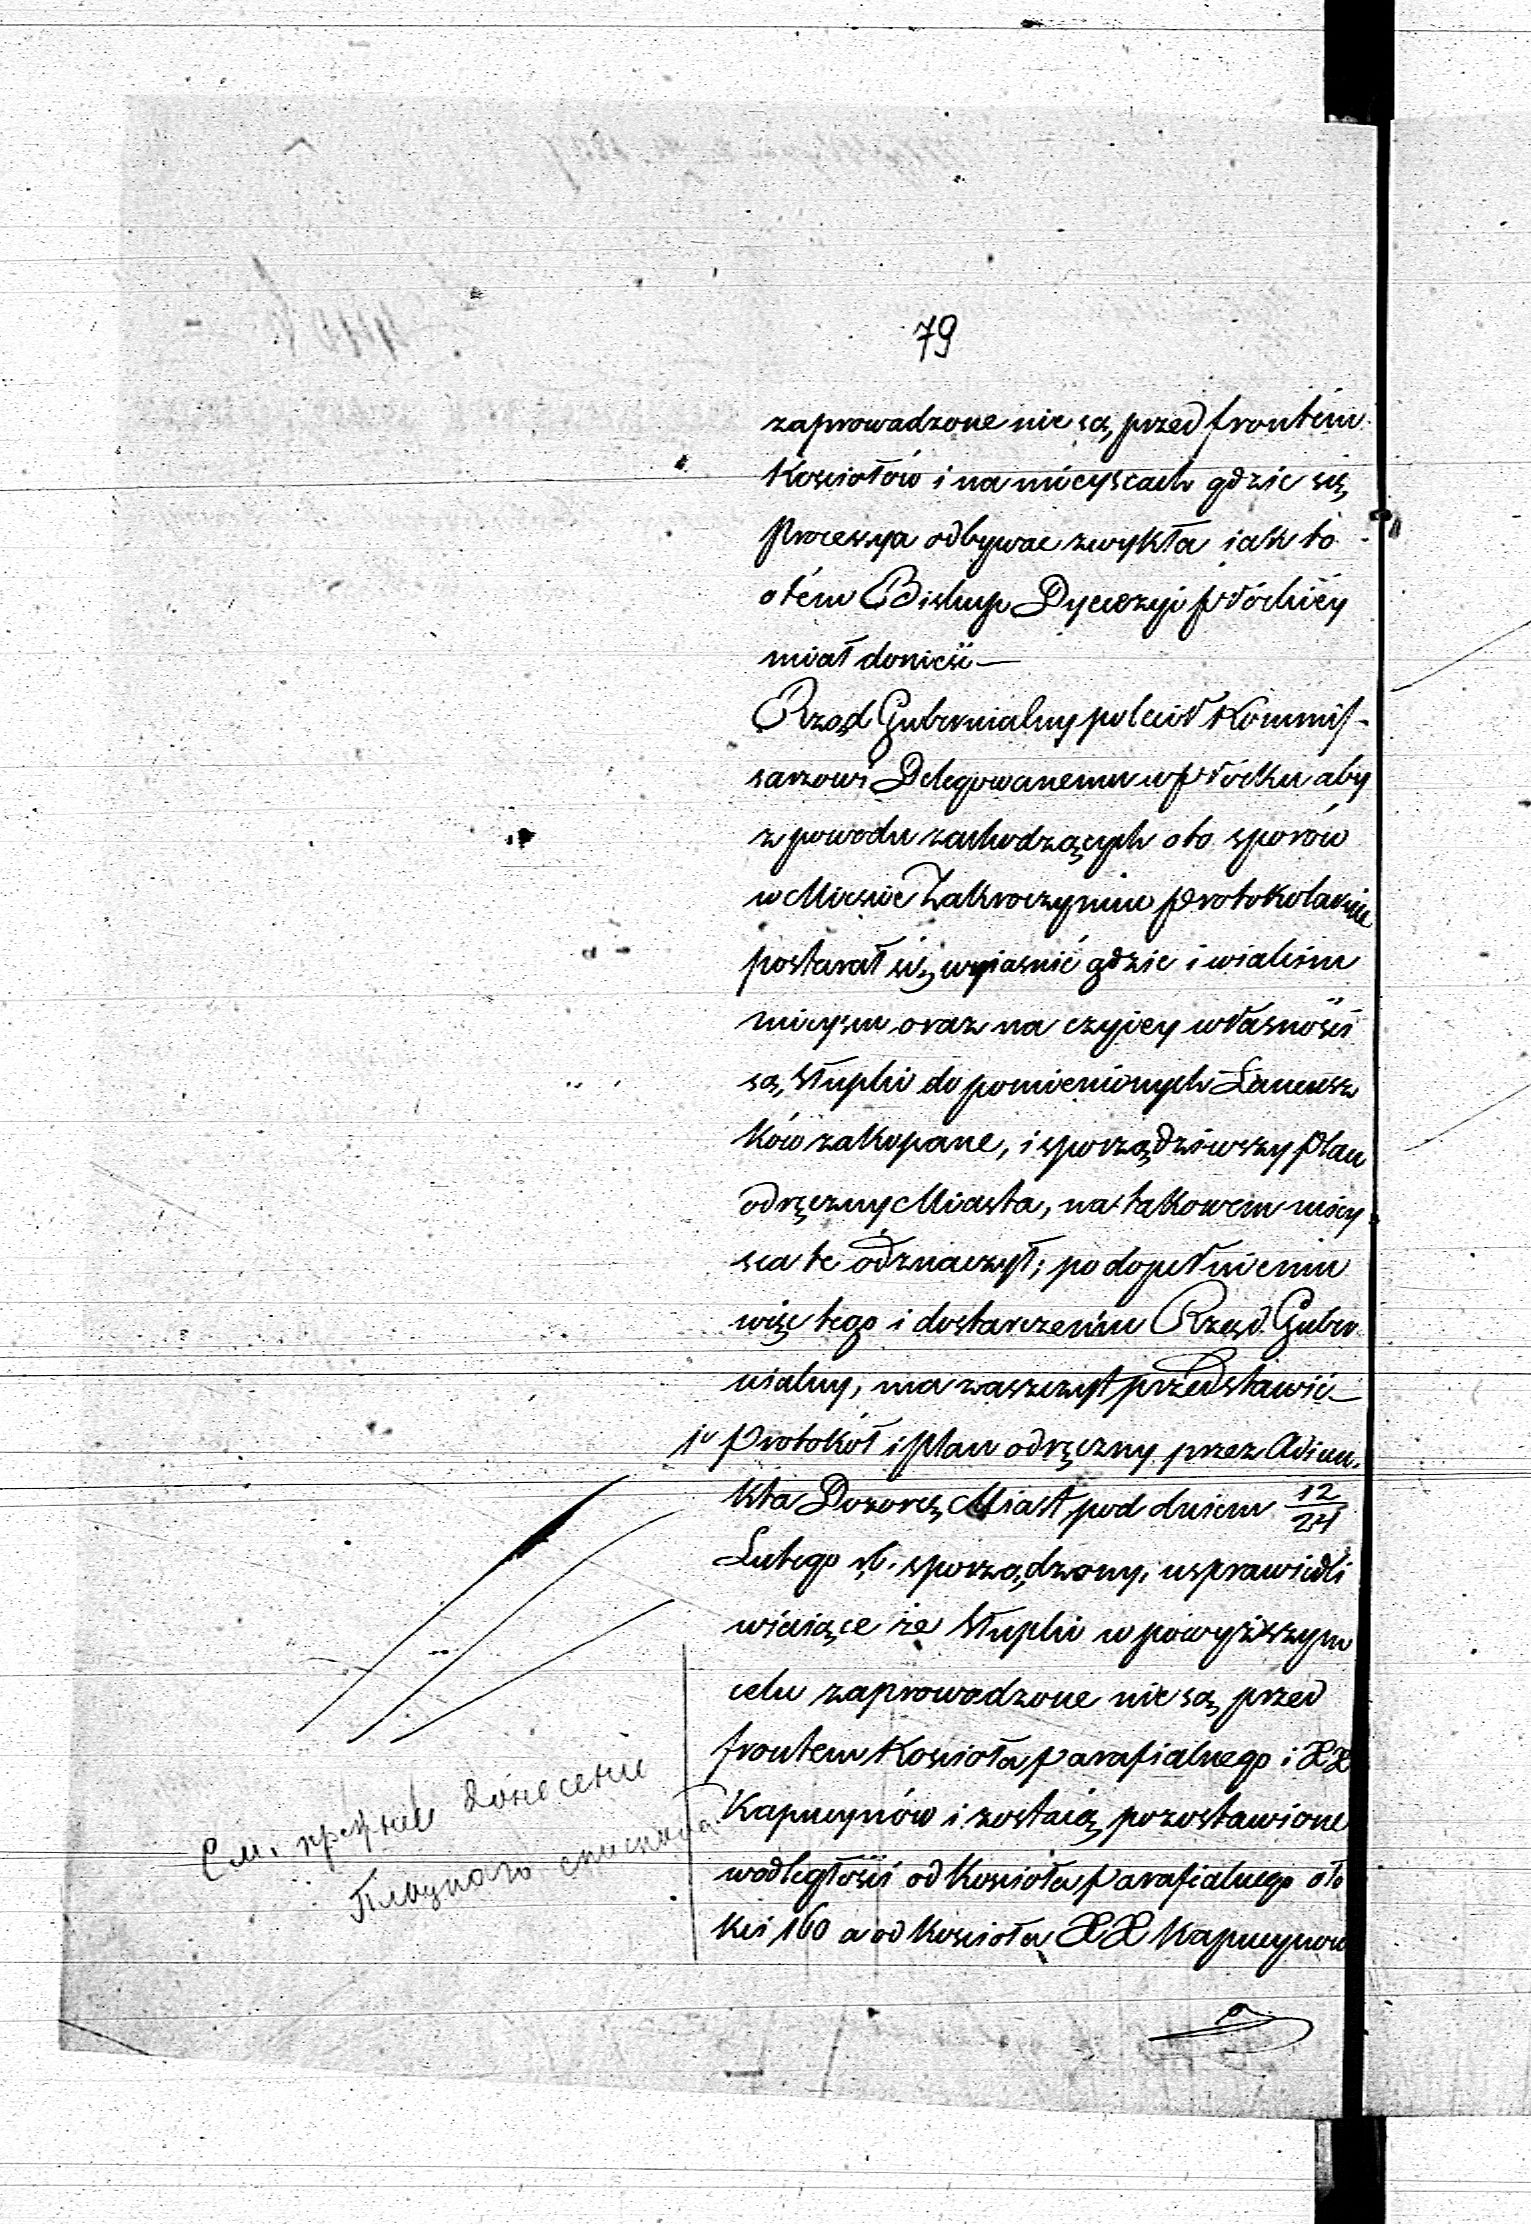 79
zaprowadzone nie są, przed frontem
Kościołów i na mieyscach gdzie się
Processya odbywac zwykła iak to
o tém Biskup Dyecezyi płóckiéy
miał donieśc —
Rząd Gubernialny polecił Kommis-
sarzowi Delegowanemu w płócku aby
z powodu zachodzących o to sporów
w Miescie Zakroczymiu protokolarnie
postarał się wyiasnić gdzie i w iakiém
mieyscu oraz na czyiey własności
są, słupki do pomienionych Łancusz
ków zakopane, i sporządziwszy plan
odręczny Miasta, na takowem miey
sca te odznaczył; po dopełnieniu
więc tego i dostarczeniu Rząd Guber
nialny, ma zaszczyt przedstawić —
1º Protokół i plan odręczny przez Adiun.
kta Dozorcę Miast pod dniem 12/24
Lutego rb. sporządzony, usprawiedli
wiaiące że słupki w powyższym
celu zaprowadzone nie są, przed
frontem Kościoła parafialnego i XX
Kapucynów i zostaią pozostawione
w odległości od Kościoła parafialnego oło
kci 160 a od Kościoła XX Kapucynow
См. донесеніе
епископа